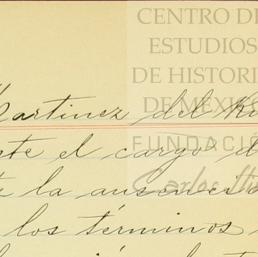 CENTRO DE
ESTUDIOS
DE HISTORI
DE MÉXIC
FUNDACIÓ
Carlos
Martinez del
el cargo d
la ausenci
los términos